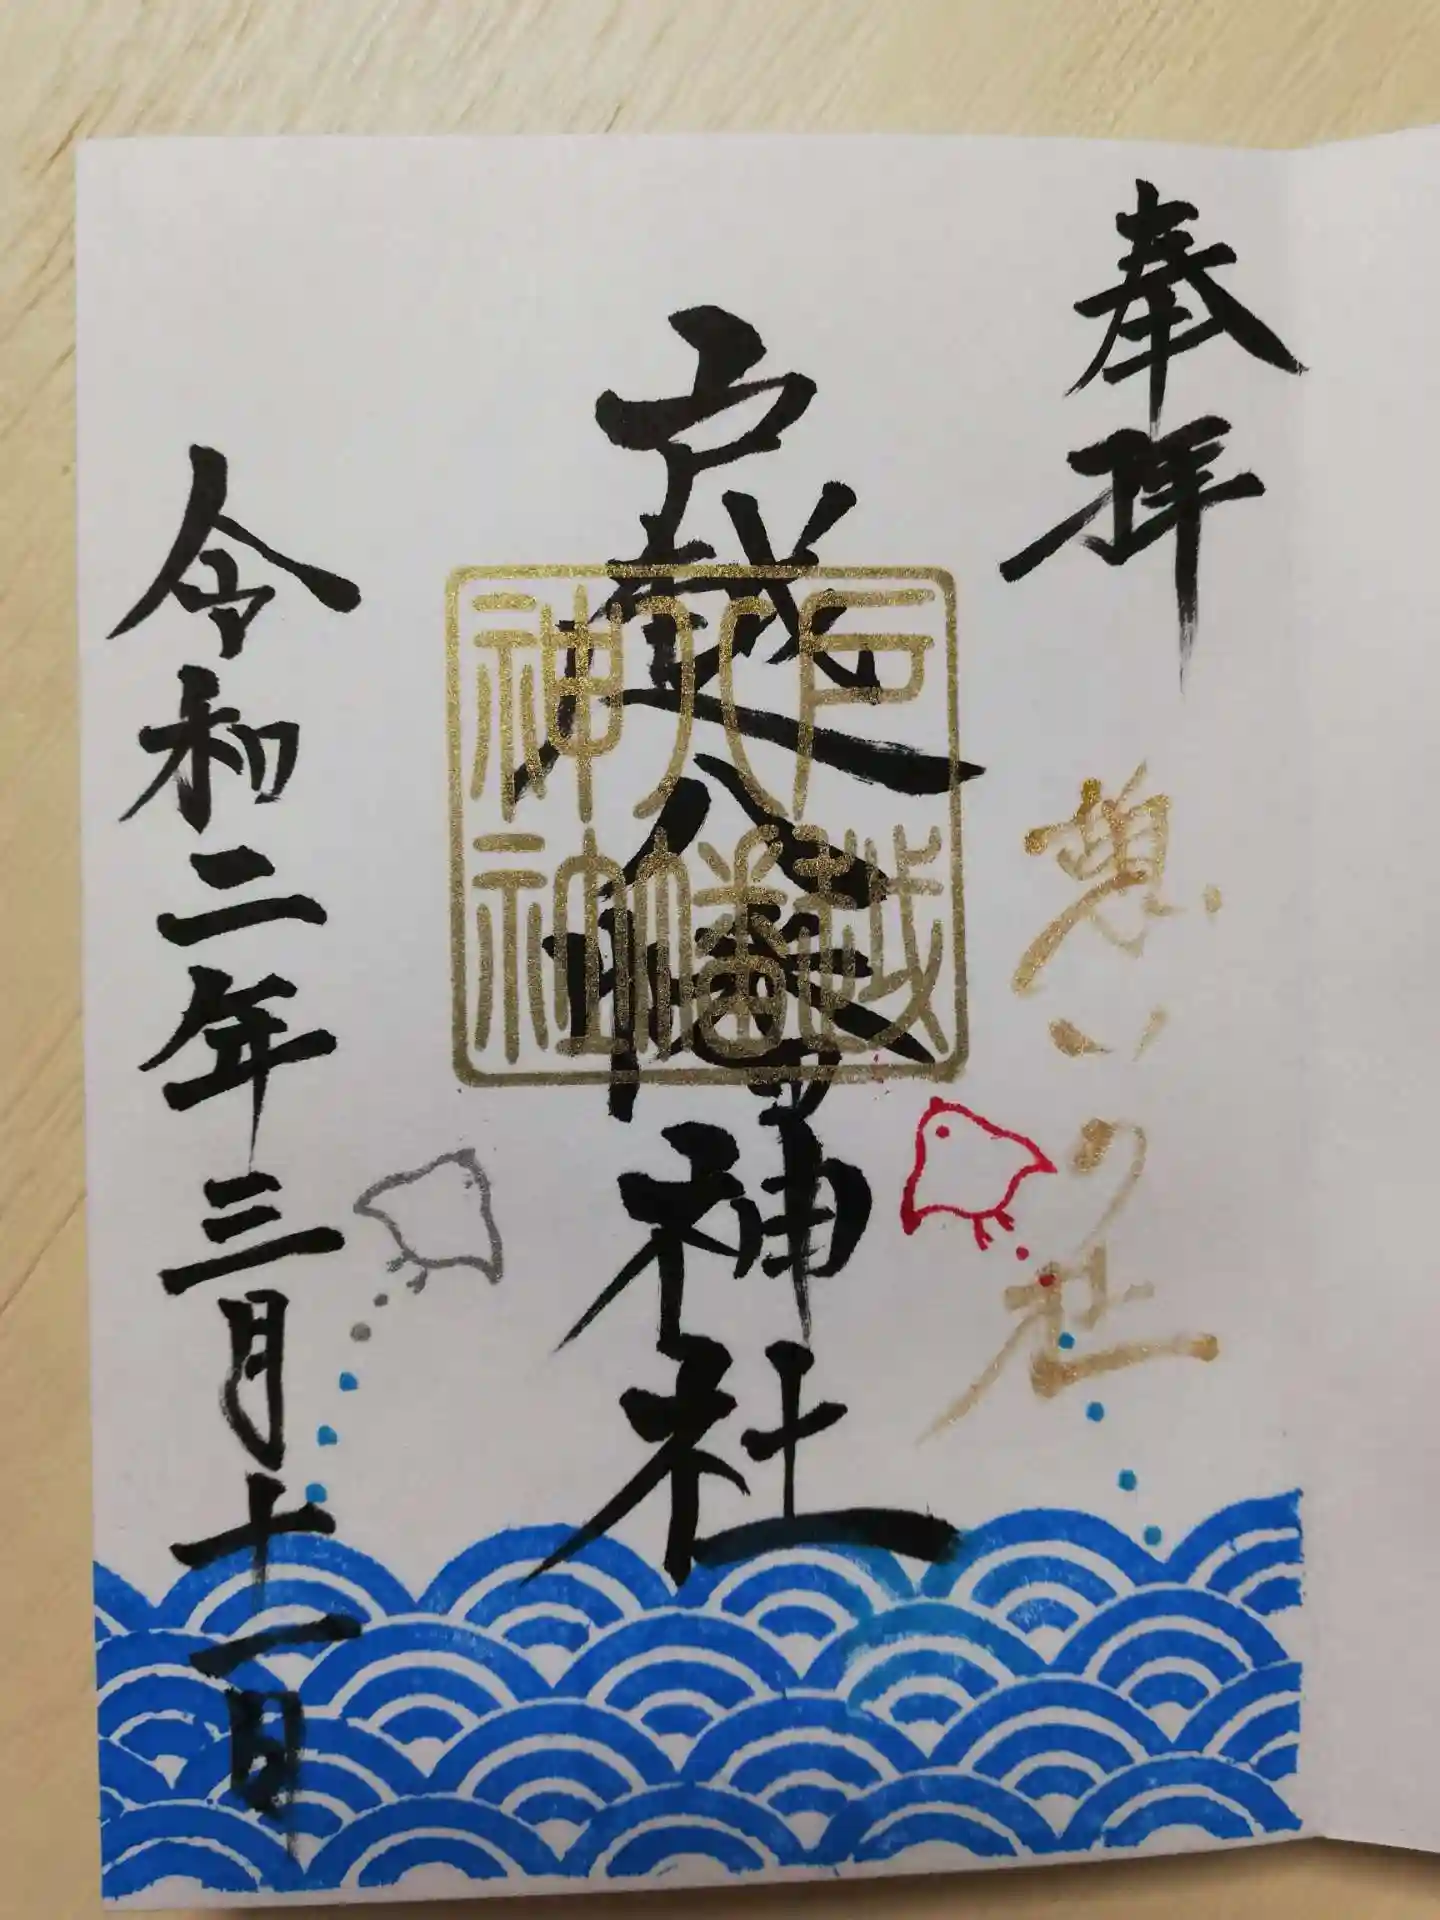 奉拝
憩いの社
戸越八幡神社
戸越
八幡
神社
令和二年三月十一日